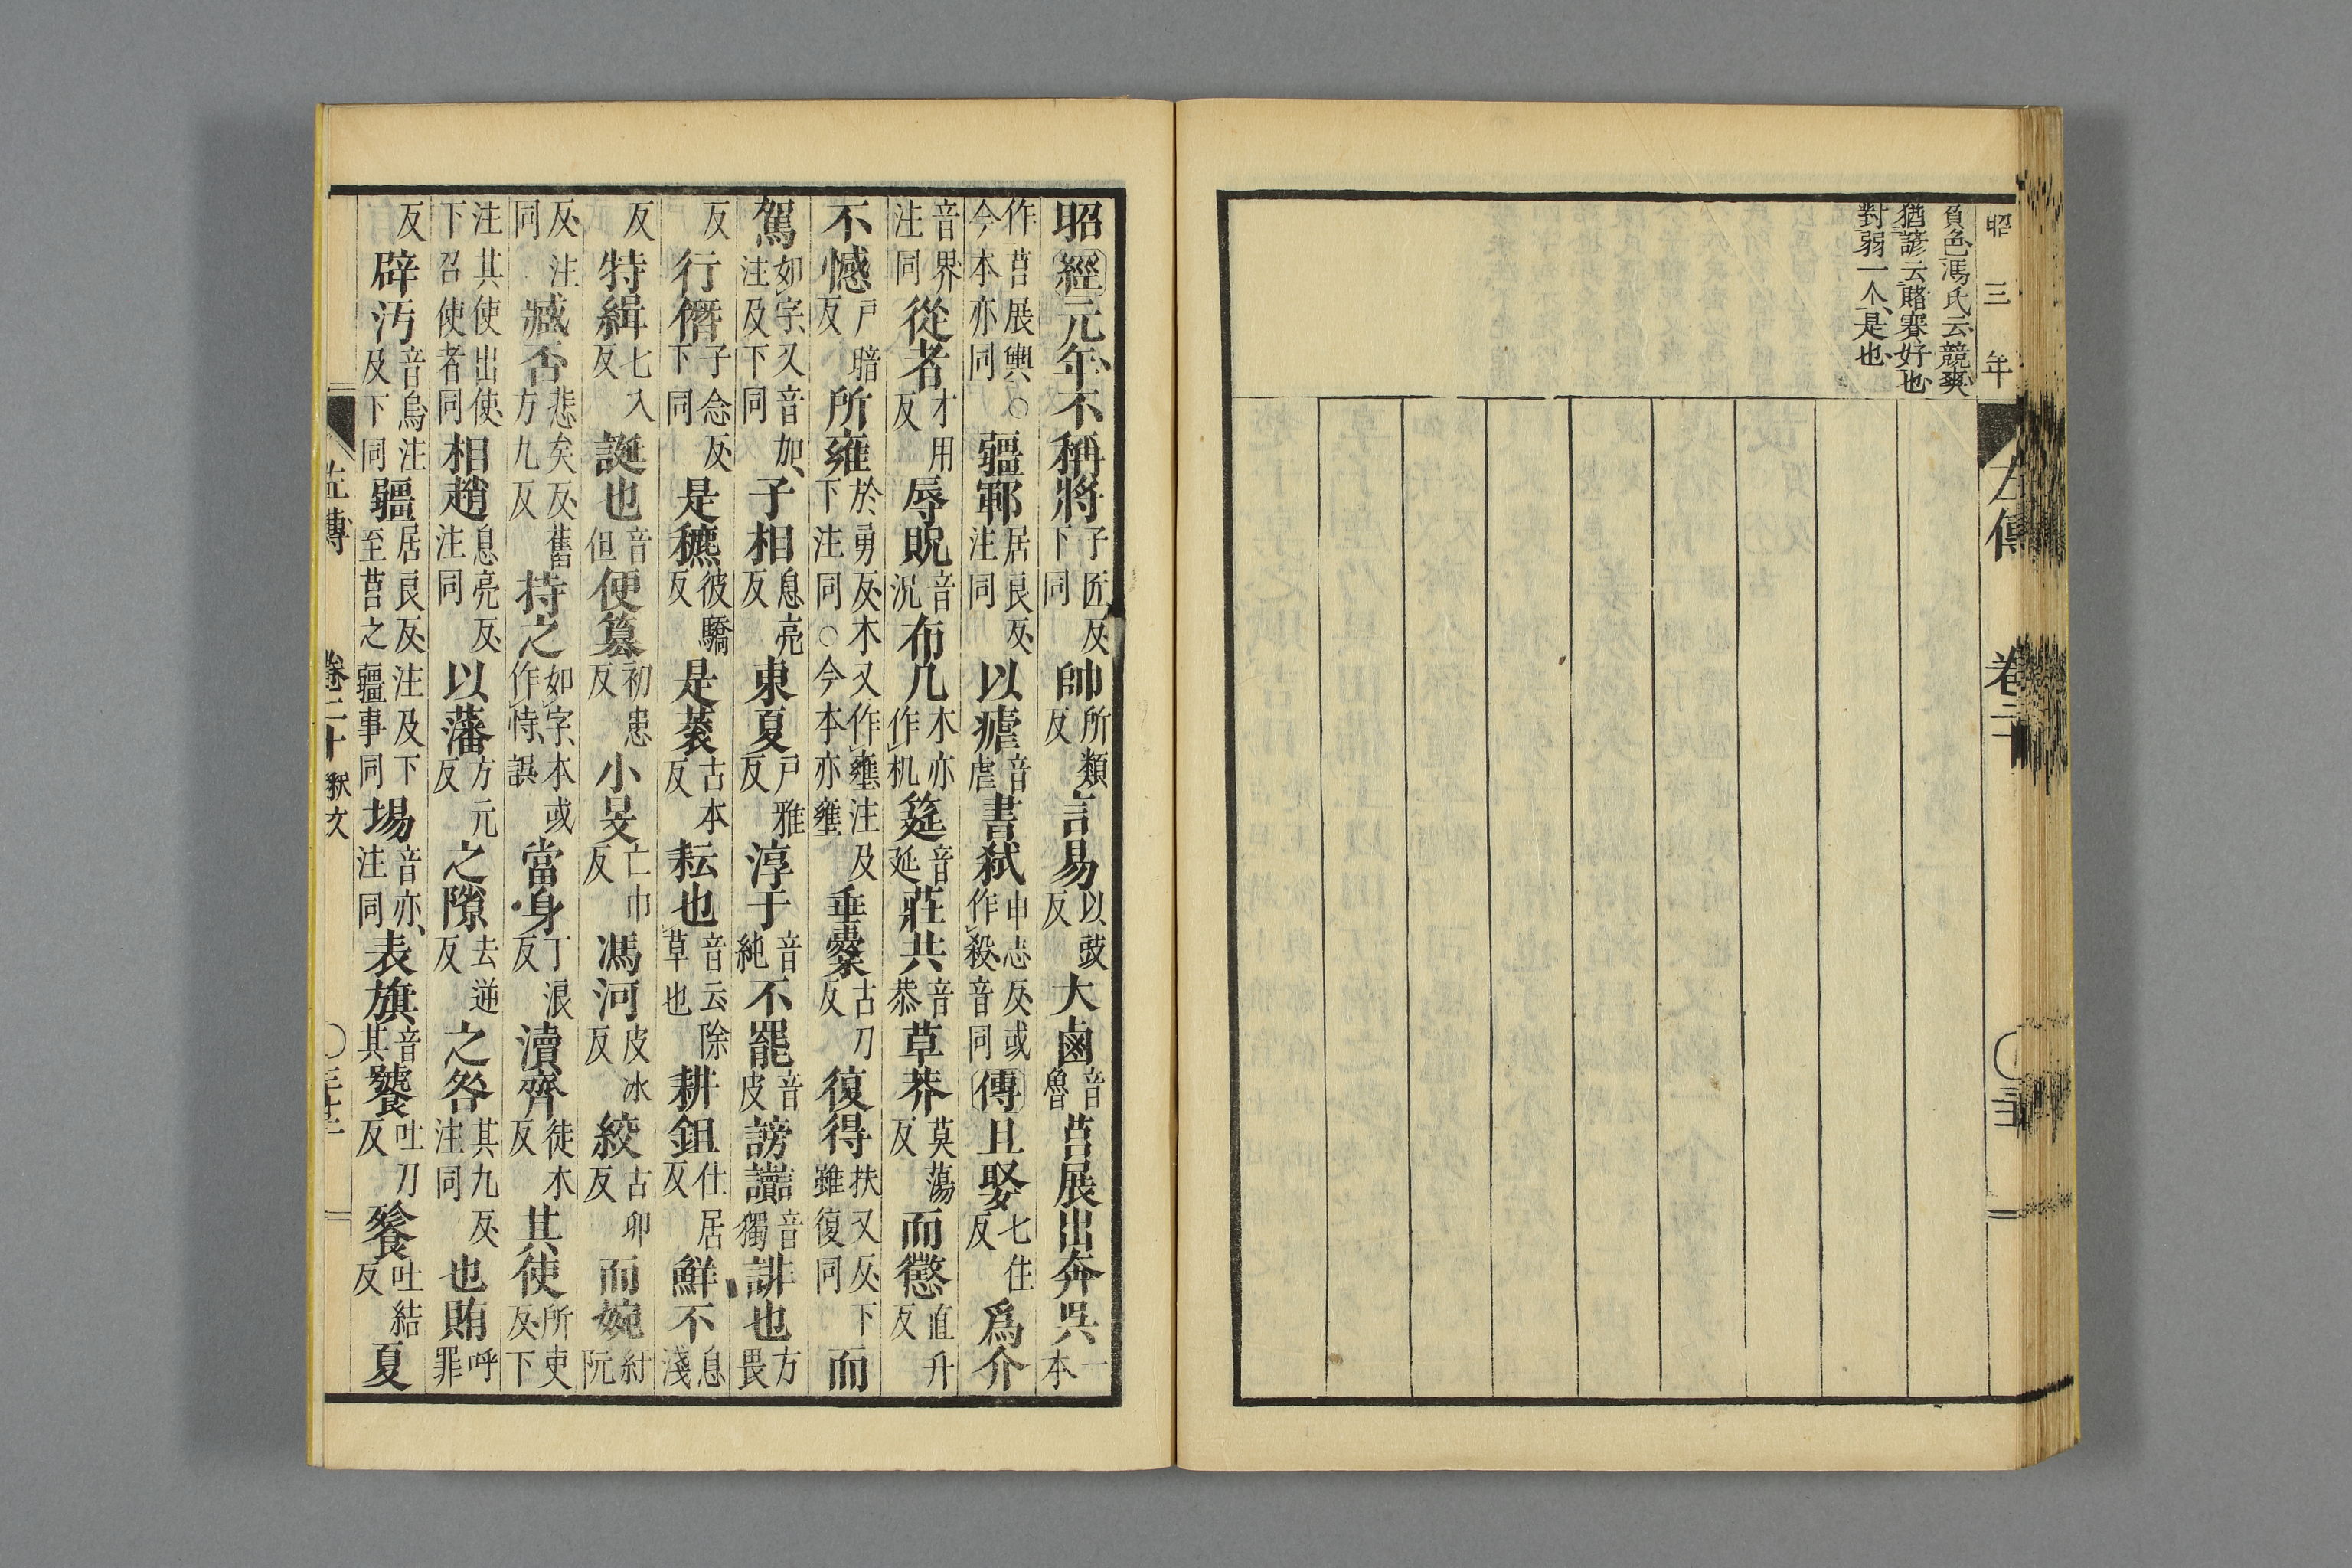 昭三年
左傳 卷二
負色馮氏云競爽
猶諺云賭賽好也
對弱一个是也
昭經元年不稱將子匠反下同帥所類反言易以豉反大鹵音魯莒展出奔吳一本
作莒展輿○今本亦同疆鄆居良反注同以瘧音虐書弑申志反或作殺音同傳且娶七住反爲介
音界注同從者才用反辱貺音況布几本亦作机筵音延莊共音恭草莽莫蕩反而懲直升反
不憾戶暗反所雍於勇反本又作壅注及下注同○今本亦壅垂櫜古刀反復得扶又反下雖復同而
駕如字又音加注及下同子相息亮反東夏戶雅反淳于音純不罷音皮謗讟音獨誹也方畏
反行僭子念反下同是穮彼驕反是蓘古本反耘也音云除草也耕鉏仕居反鮮不息淺
反特緝七入反誕也音但便篡初患反小旻亡巾反馮河皮冰反絞古卯反而婉紆阮
反注同臧否悲矣反舊方九反持之如字本或作恃誤當身丁浪反瀆齊徒木反其使所吏反下
注其使出使下召使者同相趙息亮反注同以藩方元反之隙去逆反之咎其九反注同也賄呼罪
反辟汚音烏注及下同疆居良反注及下至莒之疆事同場音亦注同表旗音其饕吐刀反餮吐結反夏
左傳 卷二十 釈文